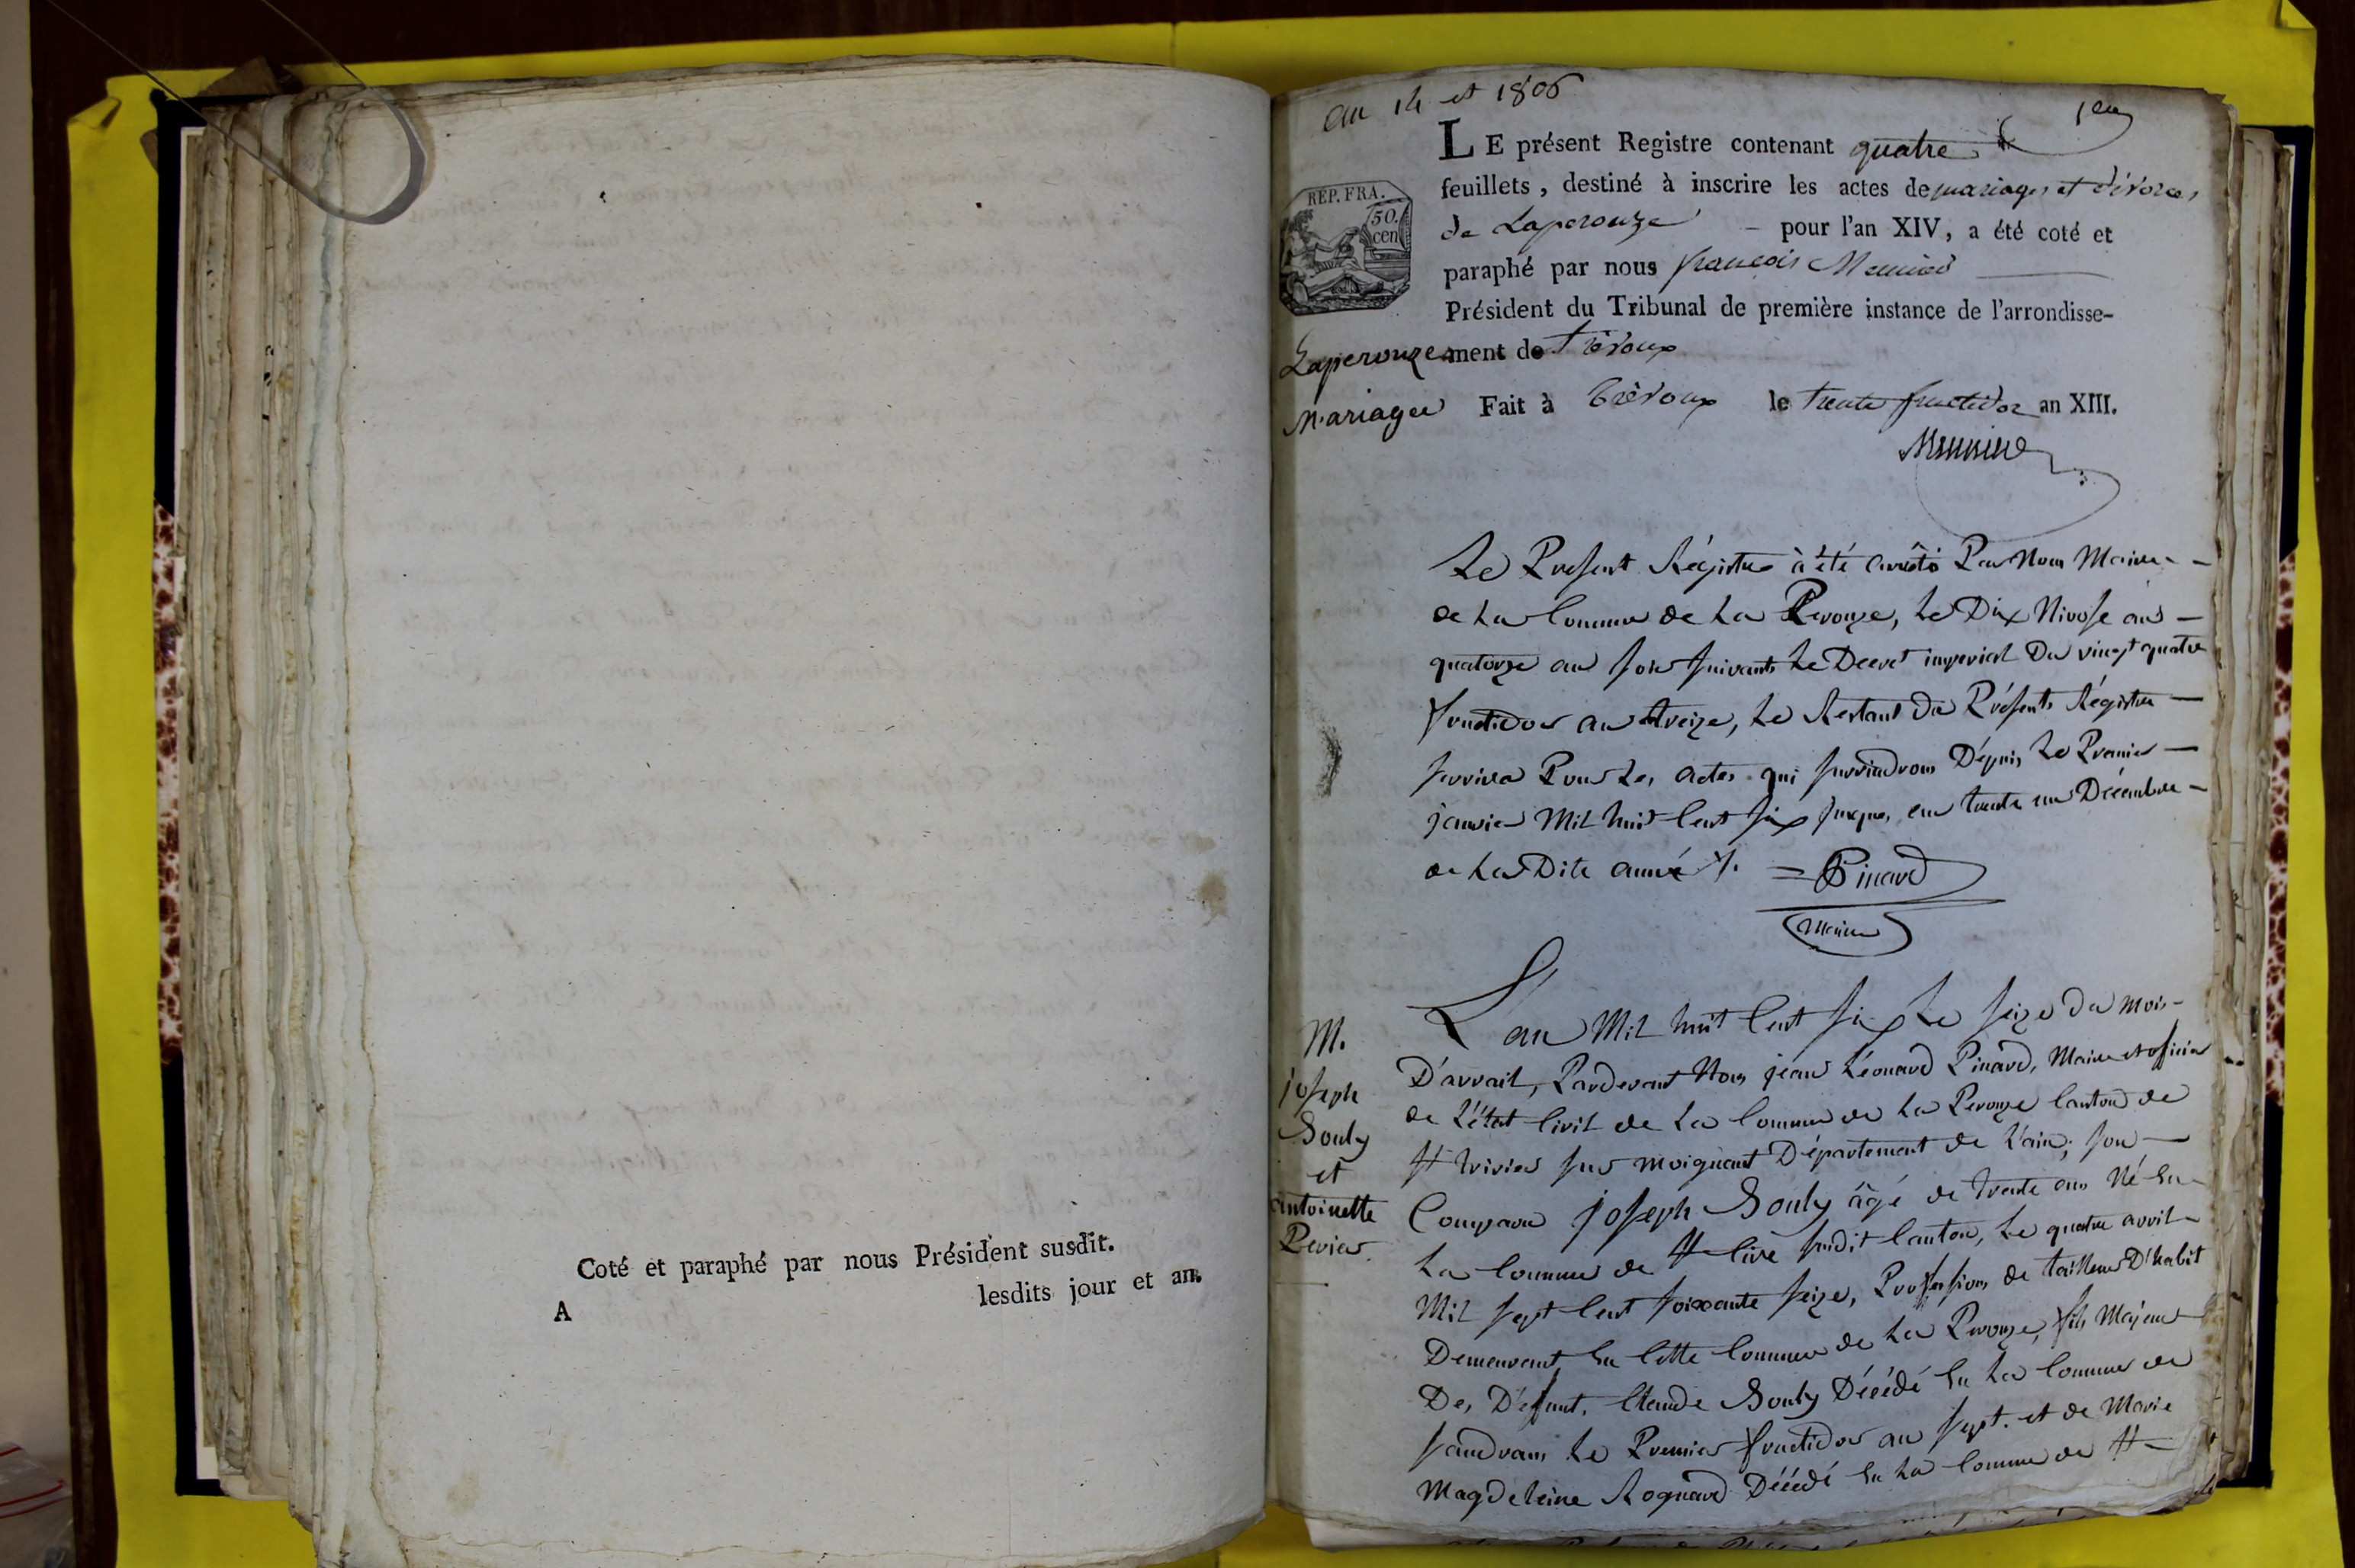 Coté et paraphé par nous Président susdit.
A lesdits jour et an.
an 14 et 1806
1er
LE présent Registre contenant quatre
feuillets, destiné à inscrire les actes de mariages et divorces
de Laperouze pour l'an XIV, a été coté et
paraphé par nous françois Meunier
REP. FRA.
50.
cen
Président du Tribunal de première instance de l'arrondisse-
ment de Trévoux
Laperouze
Mariages
Fait à Trévoux le trente fructidor an XIII.
Meunier
Le Present Régistre à été arrêté Par Nous Maire
de La Commune de La Perouze, Le Dix Nivose an
quatorze au soir suivant Le Decret imperial Du vingt quatre
fructidor an treize, Le Restant du Présent Régistre
servira Pour Les actes qui surviendrons Dépuis Le Premier
janvier Mil huit Cent six jusques au trente un Décembre
de La Dite année /. = Pinard
Maire
M.
joseph
Souly
et
antoinette
Perier
L'an Mil huit Cent six Le seize du mois
D'avrail, Pardevant Nous jean Léonard Pinard, Maire et officier
de L'état Civil de La Commune de La Perouze Canton de
St trivier sur moignent Département de L'ain, son
Comparu joseph Souly âgé de trente ans Né En
La Commune de St Cire susdit Canton, Le quatre avril
Mil sept Cent soixante seize, Profession de tailleur D'habit
Demeurant En Cette Commune de La Perouze, fils Majeur
De, Défunt, Claude Souly Décédé En La Commune de
sandrans Le Premier fructidor an sept. et de Marie
Magdeleine Rognard Décédé En La Commune de St